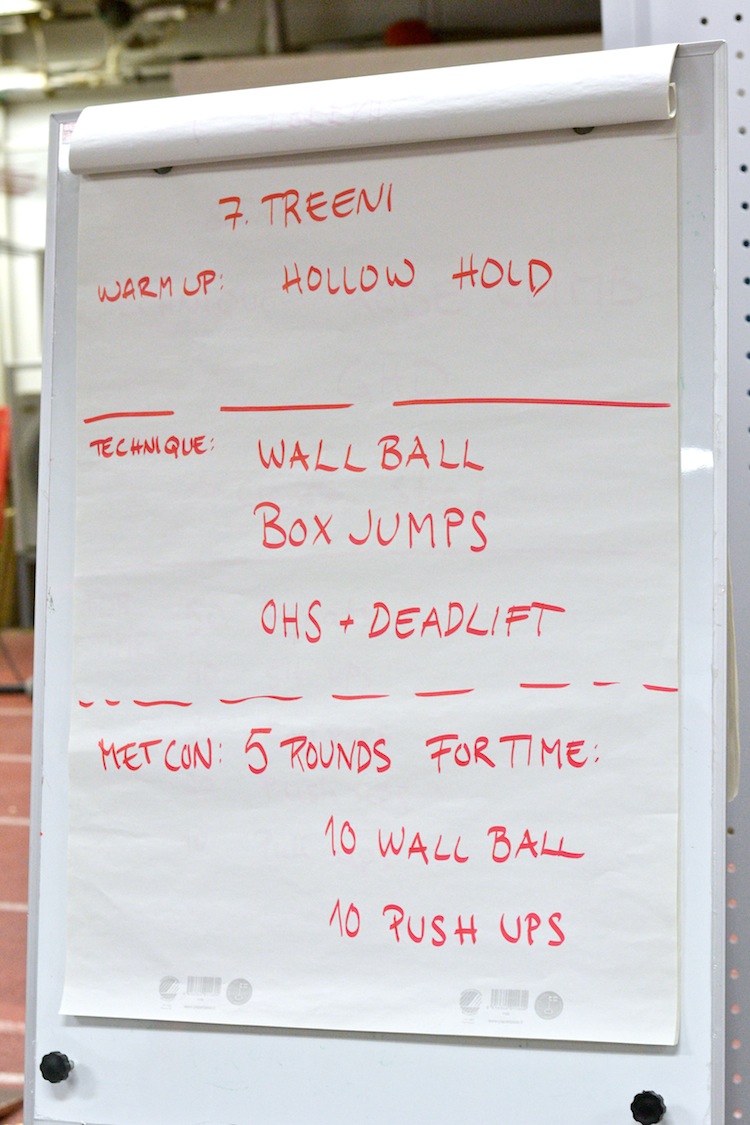 7. TREENI
WARM UP: HOLLOW HOLD
TECHNIQUE: WALL BALL
BOX JUMPS
OHS + DEADLIFT
METCON: 5 ROUNDS FOR TIME:
10 WALL BALL
10 PUSH UPS